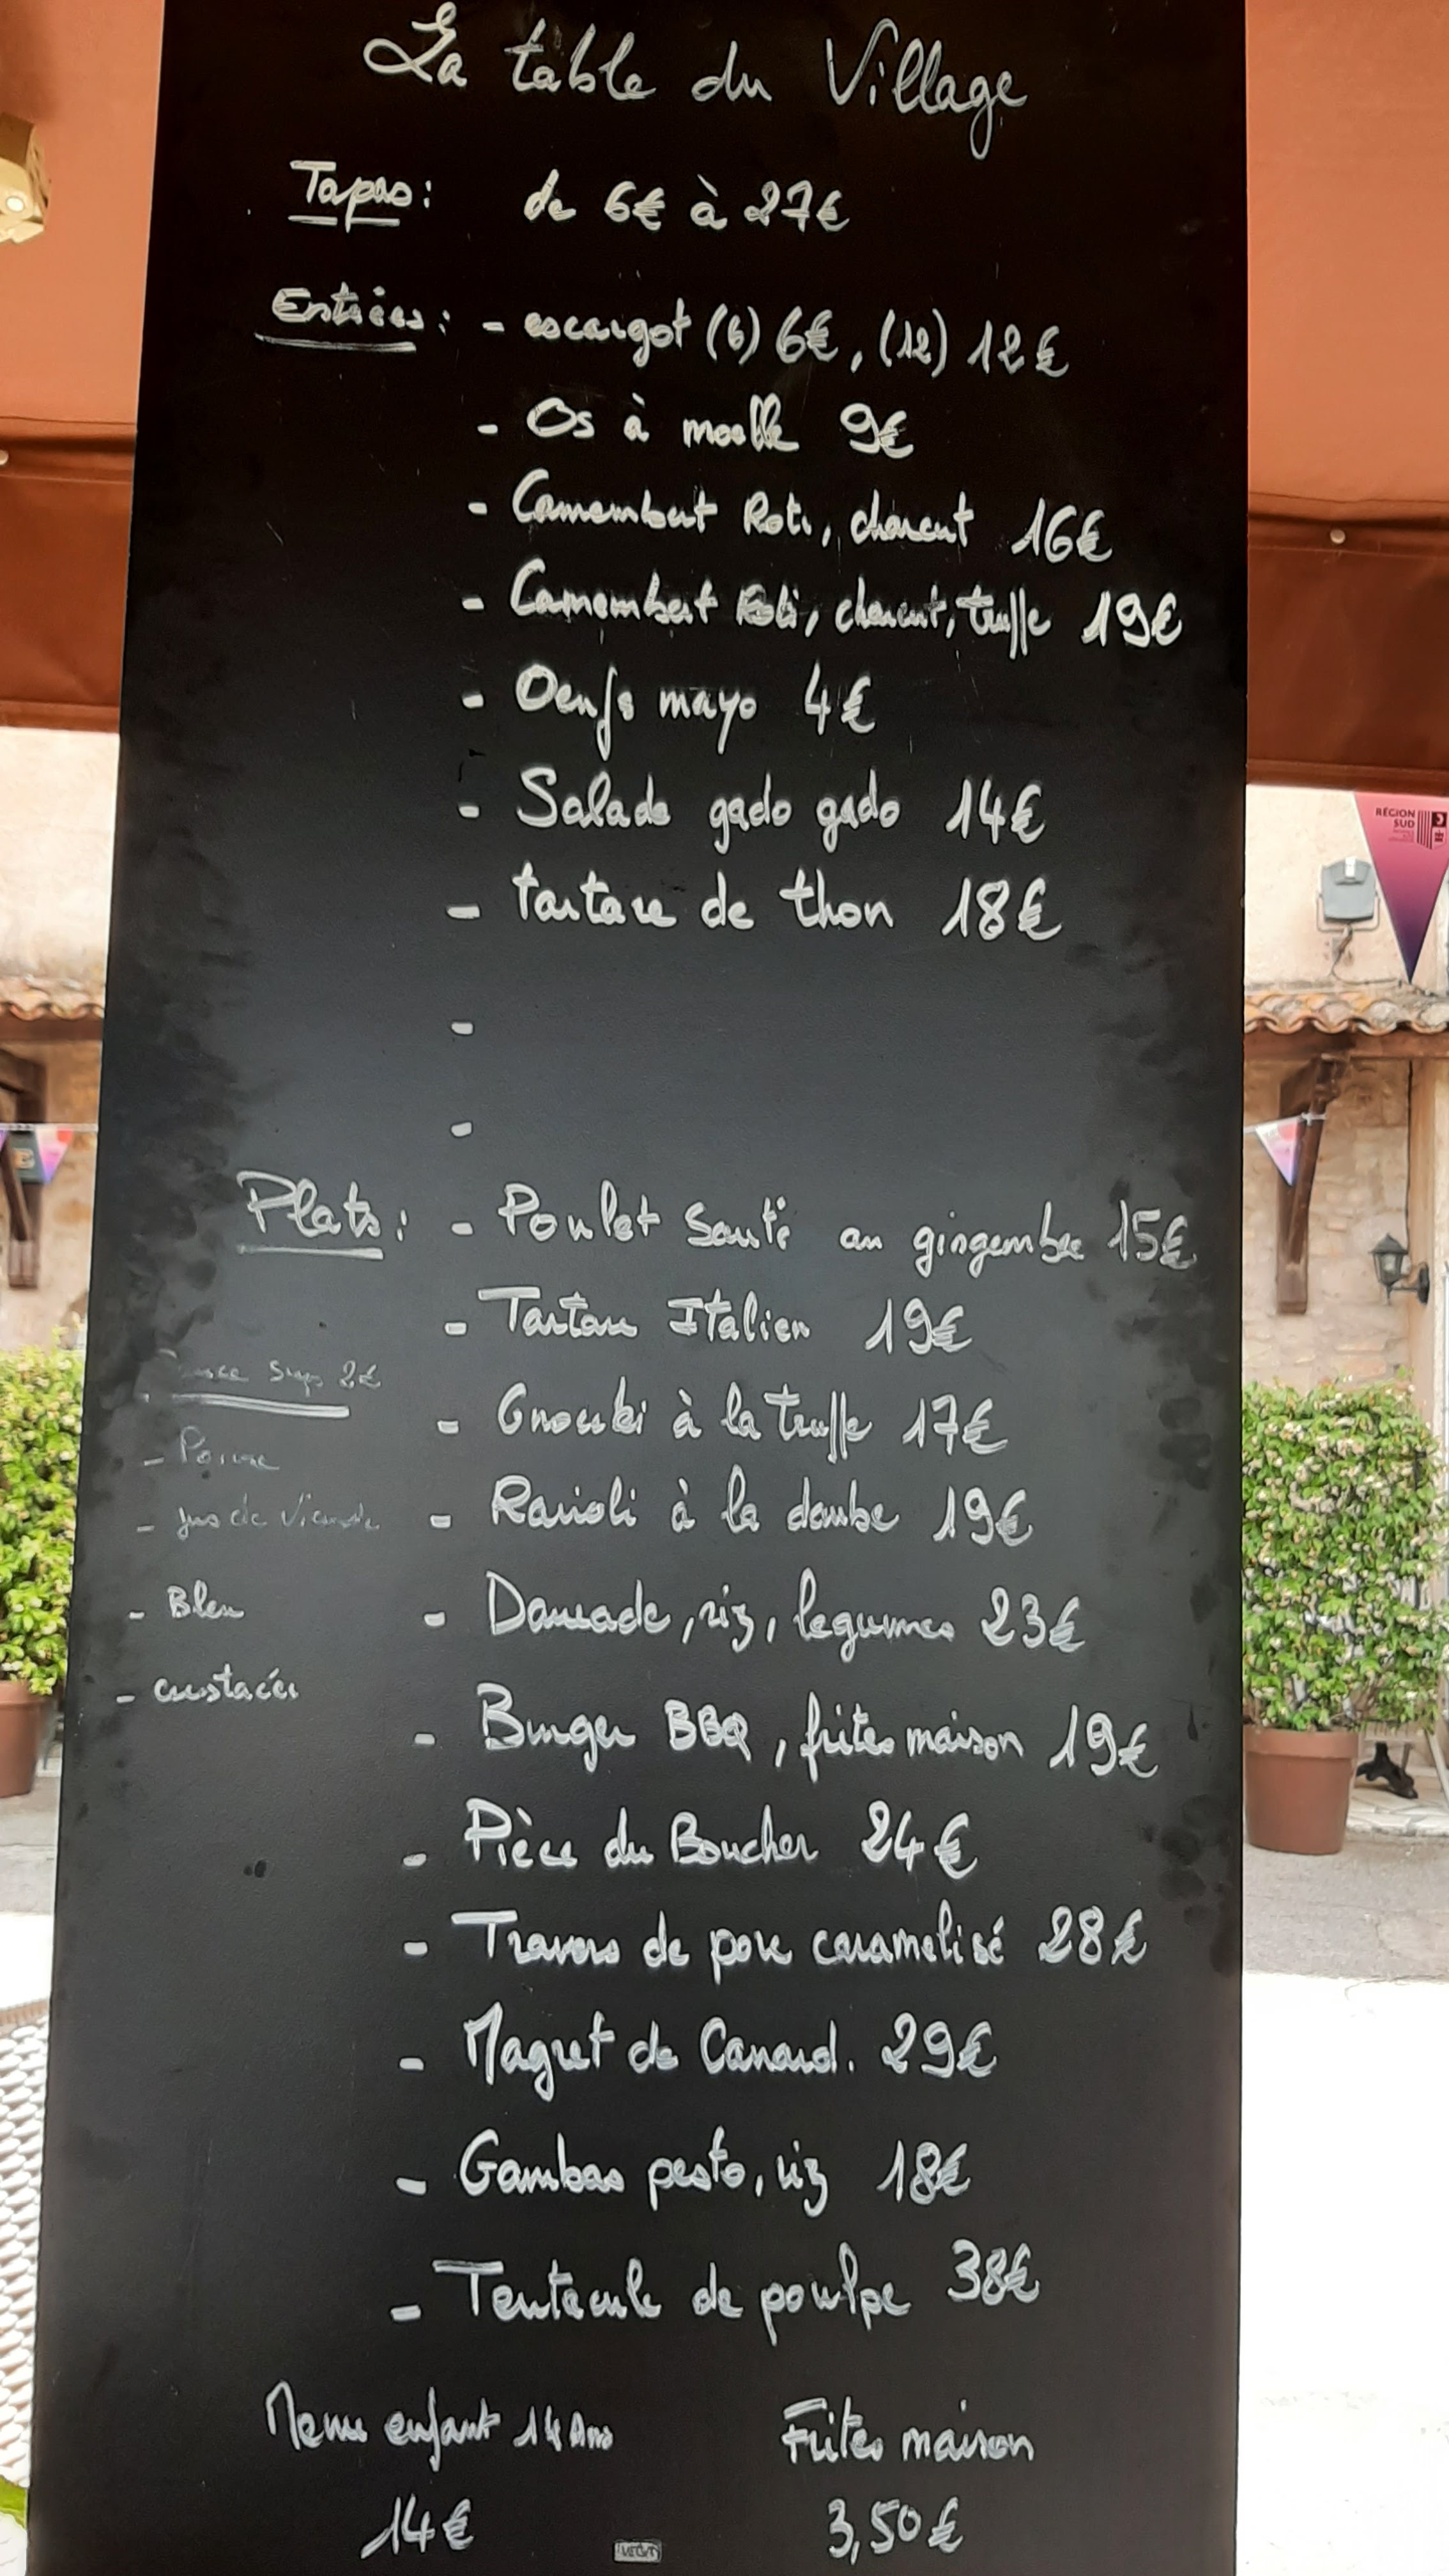 La table du Village
Tapas: de 6€ à 27€
Entrées: - escargot (6) 6€, (12) 12€
- Os à moelle 9€
- Camembert Roti, charcut 16€
- Camembert Roti, charcut, truffe 19€
- Oeufs mayo 4€
- Salade gado gado 14€
- tartare de thon 18€
-
-
Plats: - Poulet Sauté au gingembre 15€
- Tartare Italien 19€
- Gnocchi à la truffe 17€
- Ravioli à la daube 19€
- Daurade, riz, legumes 23€
- Burger BBQ, frites maison 19€
- Pièce du Boucher 24€
- Travers de porc caramelisé 28€
- Magret de Canard. 29€
- Gambas pesto, riz 18€
- Tentacule de poulpe 38€
Sup 2€
- Poivre
- jus de Viande
- Bleu
- crustacés
Menu enfant 14 Ans
14€
Frites maison
3,50€
RÉGION
SUD